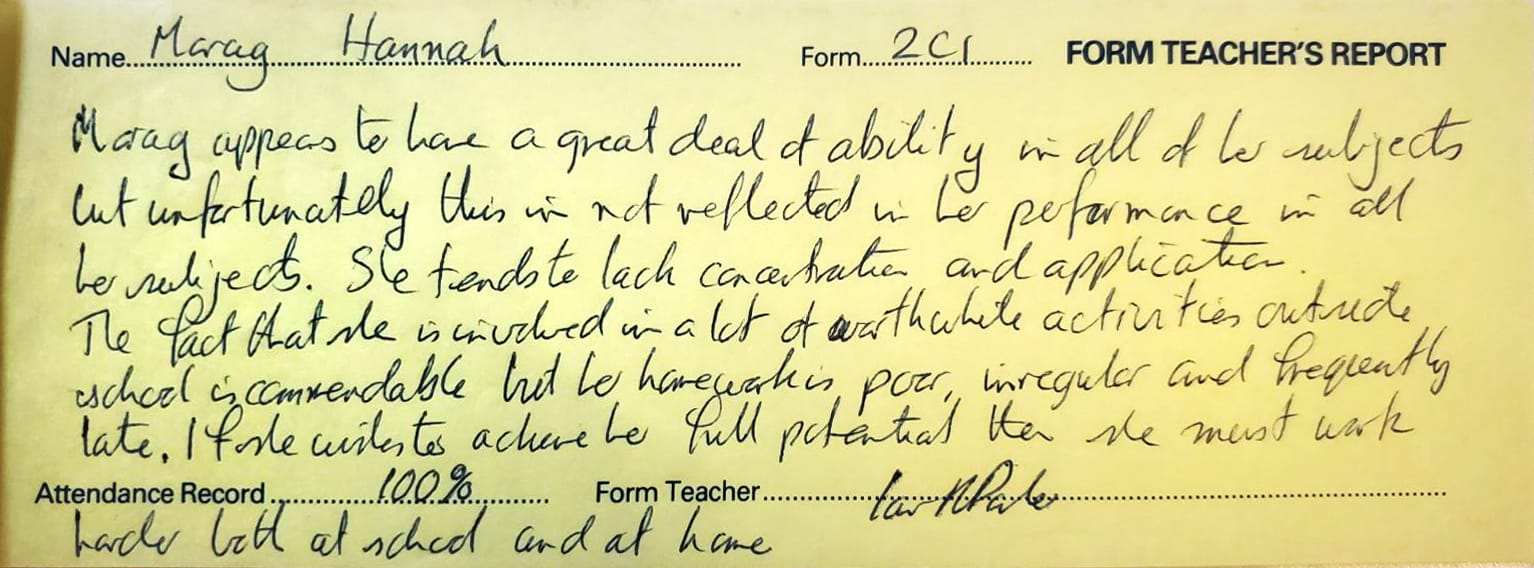 Name Marag Hannah Form 2C1 FORM TEACHER'S REPORT
Marag appears to have a great deal of ability in all of her subjects
but unfortunately this is not reflected in her performance in all
her subjects. She tends to lack concentration and application.
The fact that she is involved in a lot of worthwhile activities outside
school is commendable but her homework is poor, irregular and frequently
late. If she wishes to achieve her full potential then she must work
Attendance Record 100% Form Teacher Ian
harder both at school and at home